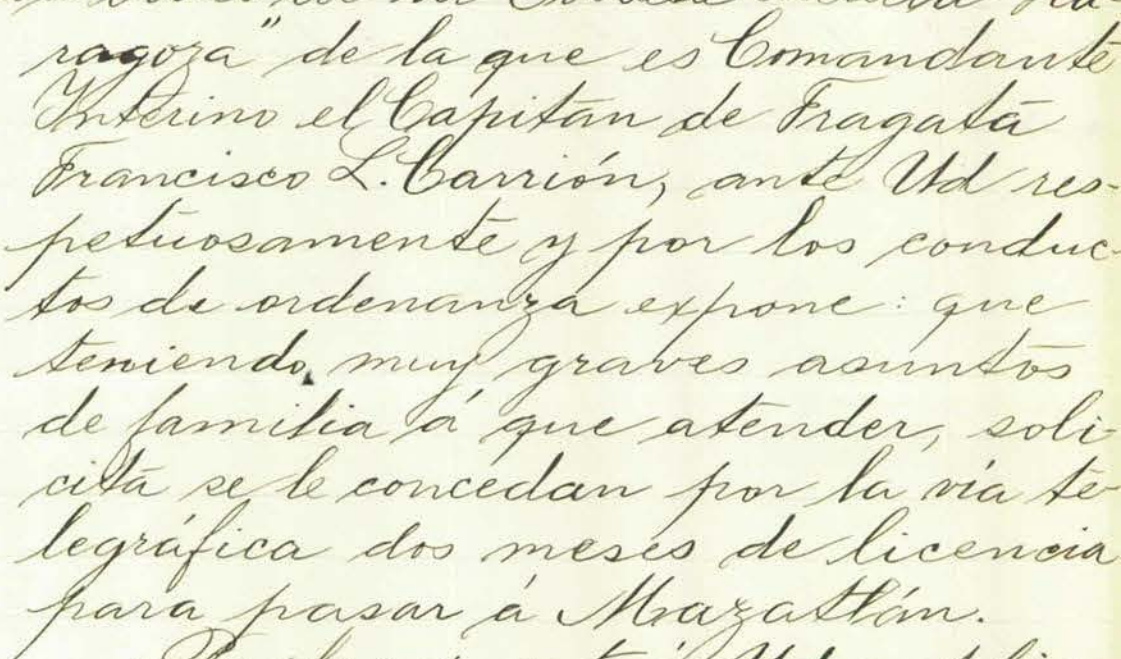 ragoza" de la que es Comandante
Interino el Capitán de Fragata
Francisco L. Carrión, ante Ud res-
petuosamente y por los conduc-
tos de ordenanza expone: que
teniendo muy graves asuntos
de familia á que atender, soli-
cita se le concedan por la vía te-
legráfica dos meses de licencia
para pasar á Mazatlán.